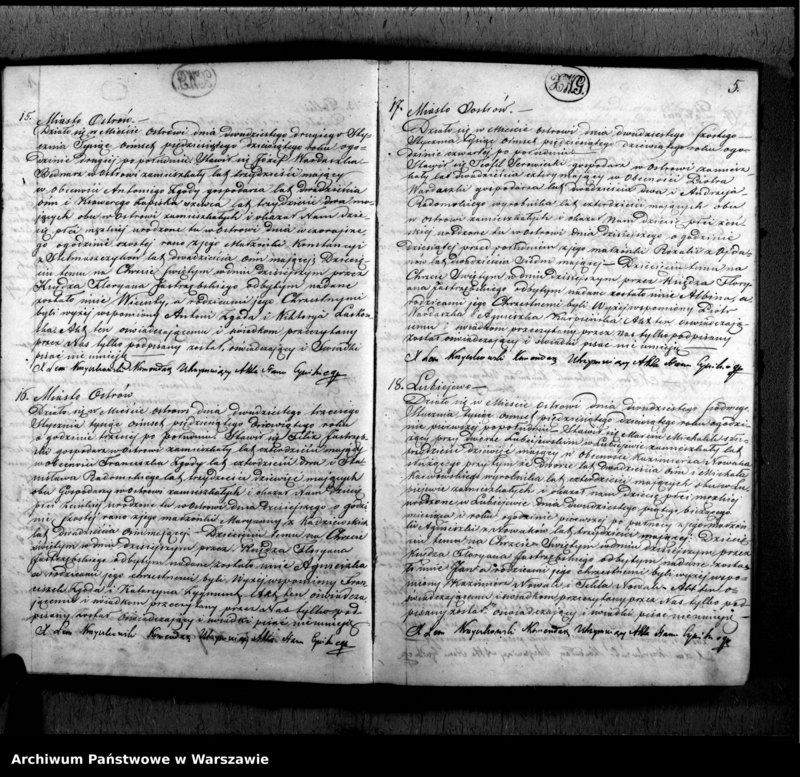 15. Miasto Ostrów. —
Działo się w Mieście Ostrowi dnia dwudziestego drugiego Sty-
cznia tysiąc ośmset pięćdziesiątego dziewiątego roku o go-
dzinie drugiej po południu. Stawił się Józef Wardaszka
w Ostrowi zamieszkały lat trzydzieści mający
w obecności Antoniego Zgody gospodarza lat dwadzieścia
ośm i lat trzydzieści dwa ma-
jących obu w Ostrowi zamieszkałych i okazał Nam dzie-
cię płci męzkiej urodzone tu w Ostrowi dnia wczorajsze-
go o godzinie szóstej rano z jego Małżonki Konstancyi
z lat dwadzieścia ośm mającej; Dziecię-
ciu temu na Chrzcie Świętym w dniu dzisiejszym przez
Księdza Floryana Jastrzębskiego odbytym nadane
zostało imie Wincenty, a rodzicami jego Chrzestnymi
byli wyżej wspomniony Antoni Zgoda i Wiktorya
Akt ten oświadczającemu i świadkom przeczytany
przez Nas tylko podpisany został, oświadczający i Świadki
pisać nie umieją
X Leon Krzyczkowski Komendarz Utrzymujący Akta Stanu Cywilnego
16. Miasto Ostrów
Działo się w Mieście Ostrowi dnia dwudziestego trzeciego
Stycznia tysiąc ośmset pięćdziesiątego dziewiątego roku
o godzinie trzeciej po południu. Stawił się Felix Jastrzęb-
ski gospodarz w Ostrowi zamieszkały lat czterdzieści mający
w obecności Franciszka Zgody lat czterdzieści dwa i Sta-
nisława Radomskiego lat trzydzieści dziewięć mających
obu Gospodarzy w Ostrowi zamieszkałych i okazał Nam Dziecię
płci żeńskiej urodzone tu w Ostrowi dnia dzisiejszego o godzi-
nie szóstej rano z jego małżonki Maryanny z
lat dwadzieścia ośm mającej — Dziecięciu temu na Chrzcie
Świętym w dniu dzisiejszym przez Księdza Floryana
Jastrzębskiego odbytym nadane zostało imie Agnieszka
a rodzicami jego chrzestnemi byli Wyżej wspomniony Fran-
ciszek Zgoda i Katarzyna Akt ten oświadcza-
jącemu i świadkom przeczytany przez Nas tylko pod-
pisany został Oświadczający i świadki pisać nie umieją
X Leon Krzyczkowski Komendarz Utrzymujący Akta Stanu Cywilnego
5.
17. Miasto Ostrów. —
Działo się w Mieście Ostrowi dnia dwudziestego szóstego
Stycznia tysiąc ośmset pięćdziesiątego dziewiątego roku o go-
dzinie czwartej po południu
Stawił się Teofil gospodarz w Ostrowi zamiesz-
kały lat dwadzieścia cztery mający w obecności Piotra
Wardaszki gospodarza lat dwadzieścia dwa i Andrzeja
Radomskiego wyrobnika lat czterdzieści mających obu
w Ostrowi zamieszkałych i okazał Nam dziecię płci żeń-
skiej urodzone tu w Ostrowi dnia dzisiejszego o godzinie
dziesiątej przed południem z jego małżonki Rozalii z
lat dwadzieścia siedm mającej — Dziecięciu temu na
Chrzcie Świętym w dniu dzisiejszym przez Księdza Flory-
ana Jastrzębskiego odbytym nadane zostało imie Albina, a
rodzicami jego Chrzestnemi byli Wyżej wspomniony Piotr
Wardaszka i Agnieszka Akt ten oświadczają-
cemu i świadkom przeczytany przez Nas tylko podpisany
został oświadczający i świadki pisać nie umieją
X Leon Krzyczkowski Komendarz Utrzymujący Akta Stanu Cywilnego
18. Lubiejewo —
Działo się w Mieście Ostrowi dnia dwudziestego siódmego
Stycznia tysiąc ośmset pięćdziesiątego dziewiątego roku o godzi-
nie pierwszej po południu. Stawił się Marcin Michalik
przy dworze Lubiejewskim w Lubiejewie zamieszkały lat
trzydzieści dziewięć mający w obecności Kazimierza Nowaka
służącego przy tymże dworze lat dwadzieścia ośm i Michała
wyrobnika lat czterdzieści mających obu w Lu-
biejewie zamieszkałych i okazał nam dziecię płci męzkiej
urodzone w Lubiejewie dnia dwudziestego piątego bieżącego
miesiąca i roku o godzinie pierwszej po północy z jego małżon-
ki Agnieszki z Nowaków lat trzydzieści mającej. Dziecię-
ciu temu na Chrzcie Świętym w dniu dzisiejszym przez
Księdza Floryana Jastrzębskiego odbytym nadane zosta-
ło imie Jan a rodzicami jego chrzestnemi byli wyżej wspo-
mniony Kazimierz Nowak i Akt ten o-
świadczającemu i świadkom przeczytany przez Nas tylko pod-
pisany został. Oświadczający i świadki pisać nie umieją
X Leon Krzyczkowski Komendarz Utrzymujący Akta Stanu Cywilnego
Archiwum Państwowe w Warszawie